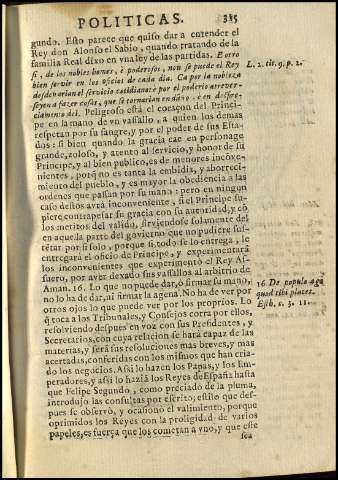 POLITICAS. 385
gundo. Esto parece que quiso dar a entender el
Rey don Alonso el Sabio, quando tratando de la
familia Real dixo en vna ley de las partidas. E otro
si, de los nobles homes, è poderosos, non se puede el Rey
bien servir en los oficios de cada dia. Ca por la nobleza
desdeñarian el servicio cotidiano: è por el poderio atrever-
seyen a fazer cosas, que se tornarian en daño, è en despre-
ciamento del. Peligroso està el coraçon del Princi-
pe en la mano de vn vassallo, a quien los demas
respetan por su sangre, y por el poder de sus Esta-
dos: si bien quando la gracia cae en personage
grande, zeloso, y atento al servicio, y honor de su
Principe, y al bien publico, es de menores inconve-
nientes, porq̃ no es tanta la embidia, y aborreci-
miento del pueblo, y es mayor la obediencia a las
ordenes que passan por su mano: pero en ningun
caso destos avrà inconveniente, si el Principe su-
piere contrapesar su gracia con su autoridad, y cõ
los meritos del valido, sirviendose solamente del
en aquella parte del govierno que no pudiere sus-
tẽtar por si solo, porque si todo se lo entrega, le
entregarà el oficio de Principe, y experimentarà
los inconvenientes que experimentò el Rey As-
suero, por aver dexado sus vassallos al arbitrio de
Aman. 16. Lo que no puede dar, ò firmar su mano,
no lo ha de dar, ni firmar la agena. No ha de ver por
otros ojos lo que puede ver por los proprios. Lo
q̃ toca a los Tribunales, y Consejos corra por ellos,
resolviendo despues en voz con sus Presidentes, y
Secretarios, con cuya relacion se harà capaz de las
materias, y seràn sus resoluciones mas breves, y mas
acertadas, conferidas con los mismos que han cria-
do los negocios. Assi lo hazen los Papas, y los Em-
peradores, y assi lo haziã los Reyes de España hasta
que Felipe Segundo, como preciado de la pluma,
introdujo las consultas por escrito; estilo que des-
pues se observò, y ocasionò el valimiento, porque
oprimidos los Reyes con la proligidad de varios
papeles, es fuerça que los cometan a vno, y que este
sea
L. 2. tit. 9. p. 2.
16 De populo age
quod tibi placet.
Esth. c. 3. 11.